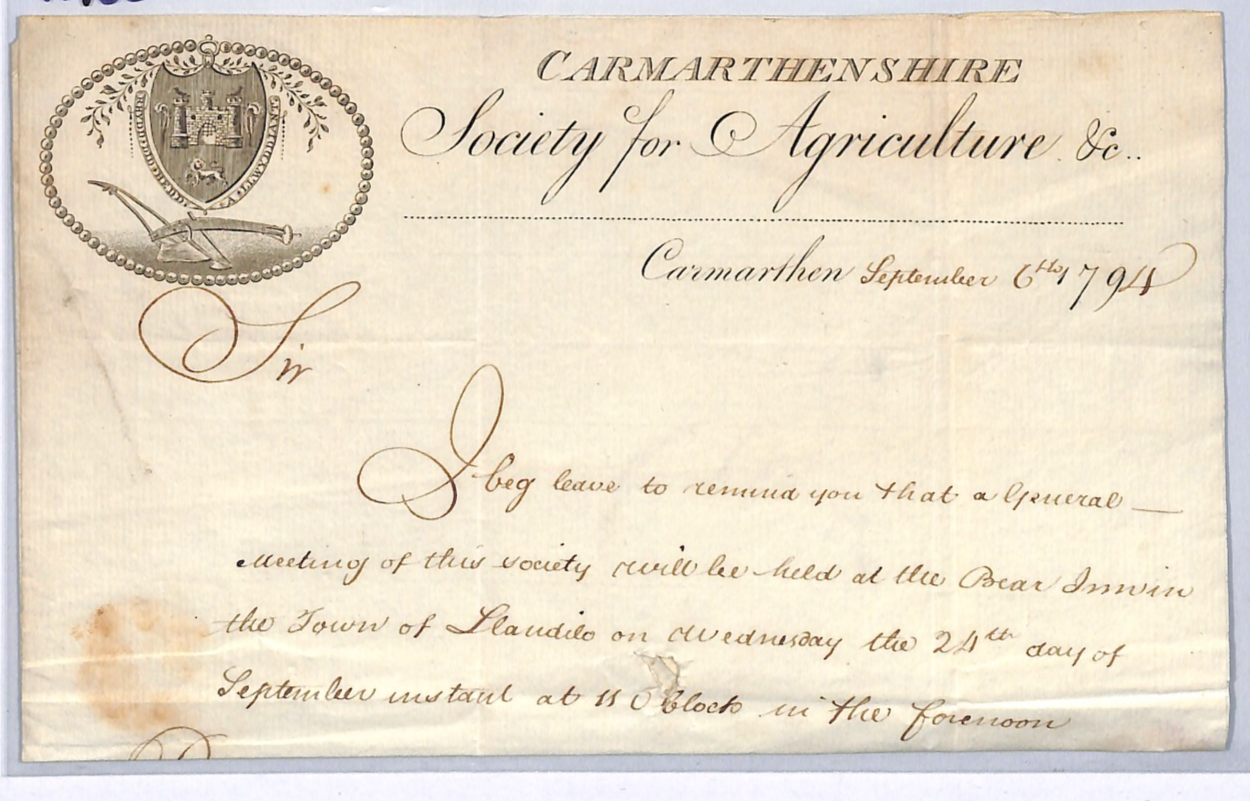 CARMARTHENSHIRE
Society for Agriculture &c..
Carmarthen September 6th 1794
Sir
I beg leave to remind you that a General —
Meeting of this society will be held at the Bear Inn in
the Town of Llandilo on Wednesday the 24th day of
September instant at 11 O Clock in the forenoon